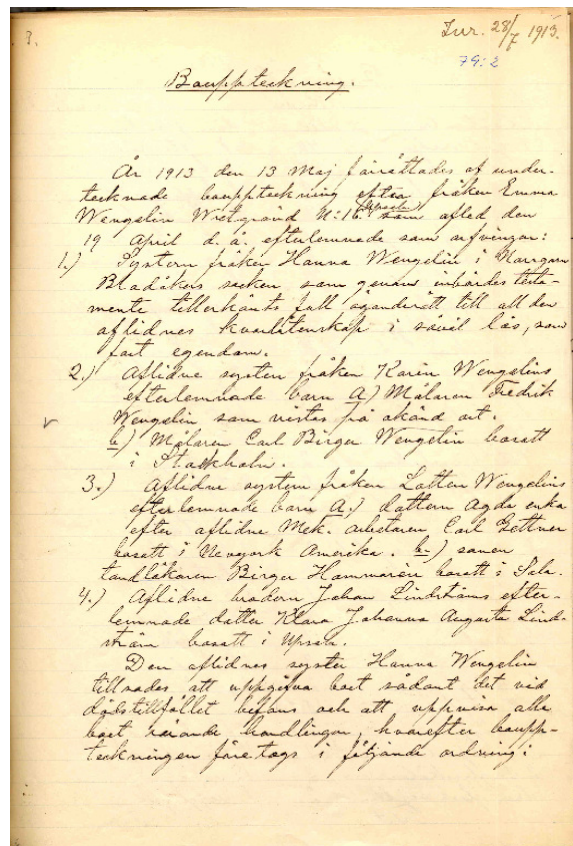 3.
Inr. 28/7 1913.
79:2
Bouppteckning.
År 1913 den 13 Maj förrättades af under-
tecknade bouppteckning efter fröken Emma
Wengelin Wretgränd N:16. (Upsala) som afled den
19 April d. å. efterlemnade som arfvingar:
1.) Systern fröken Hanna Wengelin i Harrgarn
Bladåkers socken som genom inbördes testa-
mente tillerkänts full eganderätt till all den
aflidnes kvarlåtenskap i såväl lös, som
fast egendom.
2.) Aflidne systern fröken Karin Wengelins
efterlemnade barn a) Målaren Fredrik
Wengelin som vistas på okänd ort.
b) Målaren Carl Birger Wengelin bosatt
i Stockholm.
3.) Aflidne systern fröken Lotten Wengelins
efterlemnade barn A.) dottern Agda enka
efter aflidne Mek. arbetaren Carl Gettner
bosatt i Newyork Amerika. b.) sonen
tandläkaren Birger Hammarén bosatt i Sala.
4.) Aflidne brodern Johan Lindströms efter-
lemnade dotter Klara Johanna Augusta Lind-
ström bosatt i Upsala.
Den aflidnes syster Hanna Wengelin
tillsades att uppgifva boet sådant det vid
dödstillfället befans och att uppvisa alla
boet rörande handlingar, hvarefter boupp-
teckningen företogs i följande ordning: